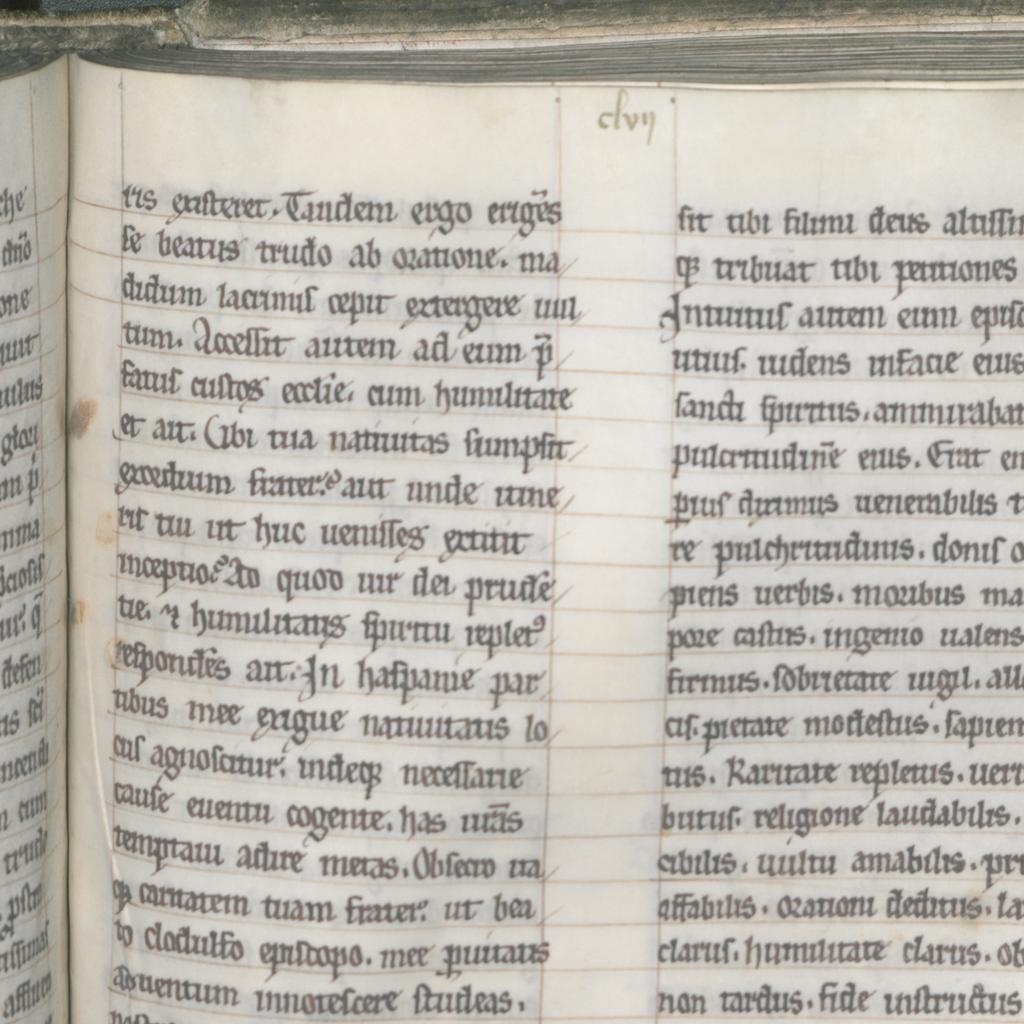 clvij
tis existeret. Tandem ergo erigẽs
se beatus trudo ab oratione. ma
didum lacrimis cepit extergere uul
tum. Accessit autem ad eum p̃
fatus custos ecclīe. cum humilitate
et ait. Ubi tua natiuitas sumpsit
exordium frater? aut unde itine
ris tui ut huc uenisses extitit
inceptio? Ad quod uir dei prudē
tie. ⁊ humilitatis spiritu replet⁹
respondēs ait. In haspanie par
tibus mee exigue natiuitatis lo
cus agnoscitur. indeqꝫ necessarie
cause euentu cogente. has ur̄as
temptaui adire metas. Obsecro ita
qꝫ caritatem tuam frater. ut bea
to clodulfo episcopo. mee ꝑuitatis
aduentum innotescere studeas.
sit tibi filimi deus altissi
qꝫ tribuat tibi petitiones
Intuitus autem eum episc
utius. uidens infacie eius
sancti spiritus. ammirabat
pulcritudinē eius. Erat en
pius diximus uenerabilis t
re pulchritudinis. donis o
piens uerbis. moribus ma
pore castus. ingenio ualens
firmus. sobrietate uigil. all
cis. pietate modestus. sapien
tus. Karitate repletus. ueri
butus. religione laudabilis.
cibilis. uultu amabilis. pr
affabilis. orationi deditus. la
clarus. humilitate clarus. ob
non tardus. fide instructus